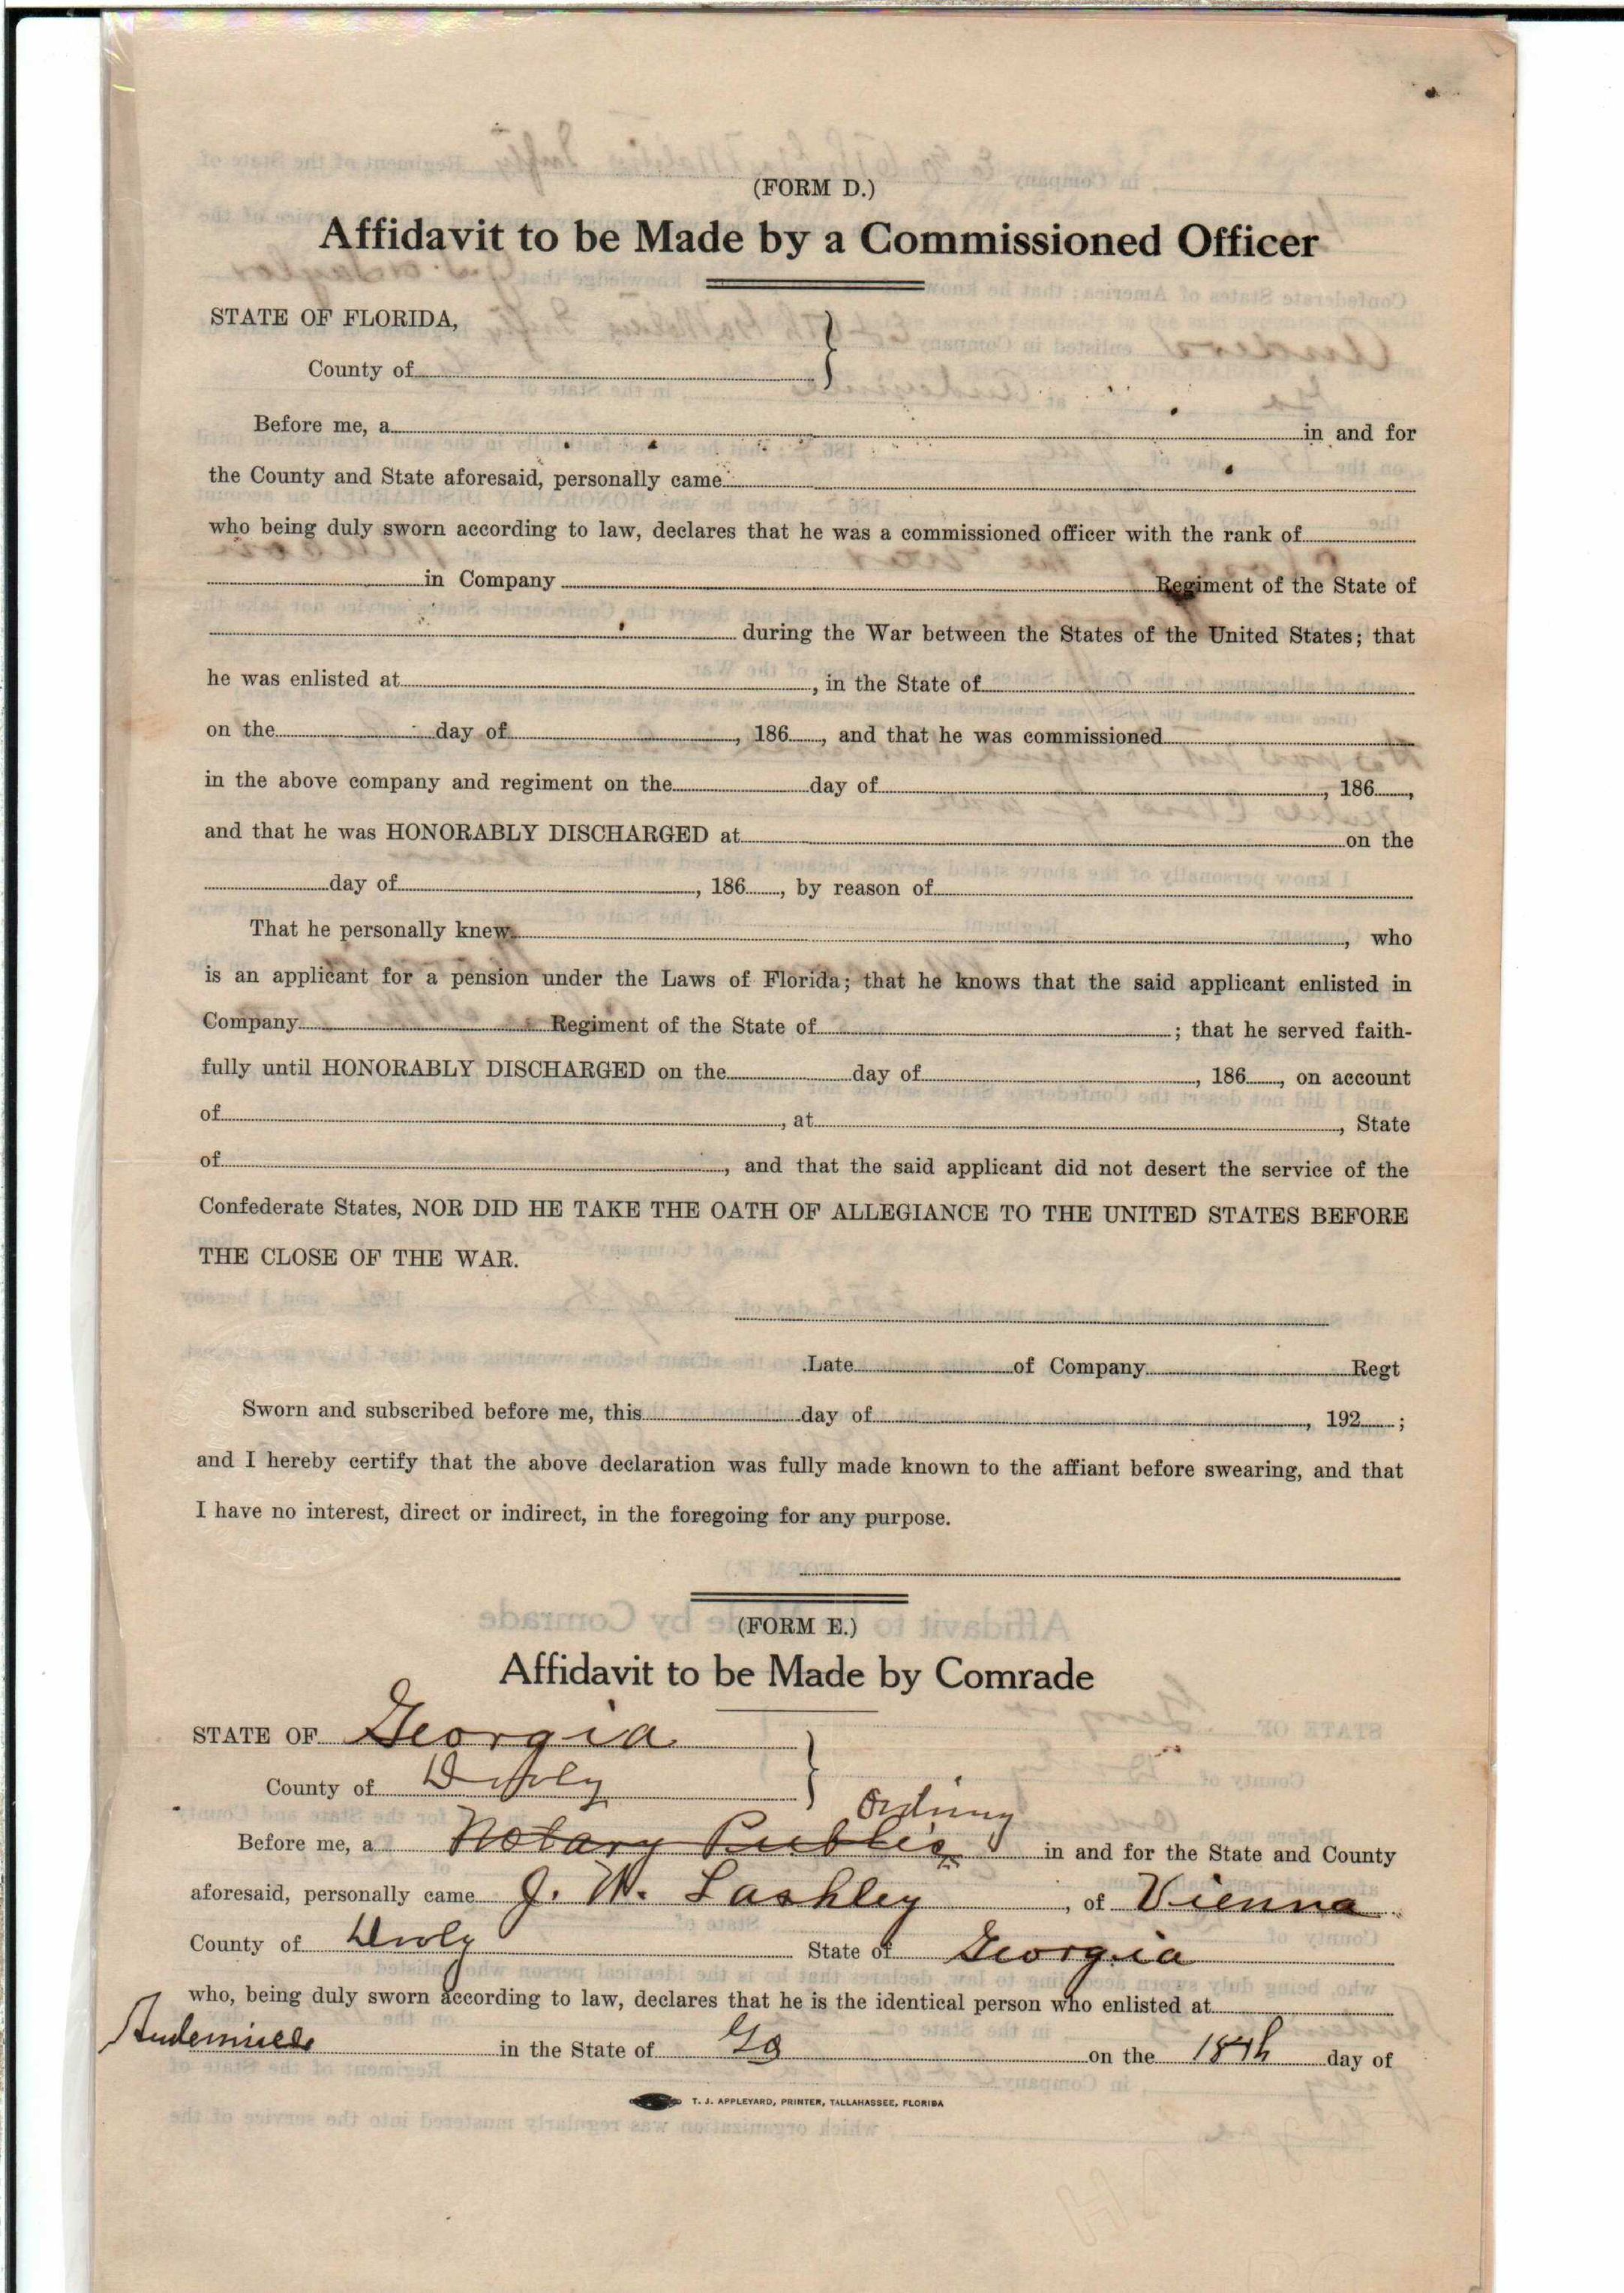 (FORM D.)
Affidavit to be Made by a Commissioned Officer
STATE OF FLORIDA,
County of
Before me, a in and for
the County and State aforesaid, personally came
who being duly sworn according to law, declares that he was a commissioned officer with the rank of
in Company Regiment of the State of
during the War between the States of the United States; that
he was enlisted at , in the State of
on the day of , 186 , and that he was commissioned
in the above company and regiment on the day of , 186 ,
and that he was HONORABLY DISCHARGED at on the
day of , 186 , by reason of
That he personally knew , who
is an applicant for a pension under the Laws of Florida; that he knows that the said applicant enlisted in
Company Regiment of the State of ; that he served faith-
fully until HONORABLY DISCHARGED on the day of , 186 , on account
of , at , State
of , and that the said applicant did not desert the service of the
Confederate States, NOR DID HE TAKE THE OATH OF ALLEGIANCE TO THE UNITED STATES BEFORE
THE CLOSE OF THE WAR.
Late of Company Regt
Sworn and subscribed before me, this day of , 192 ;
and I hereby certify that the above declaration was fully made known to the affiant before swearing, and that
I have no interest, direct or indirect, in the foregoing for any purpose.
(FORM E.)
Affidavit to be Made by Comrade
STATE OF Georgia
County of Dooly
Before me, a Notary Public in and for the State and County
aforesaid, personally came J. W. Lashley , of Vienna
County of Dooly State of Georgia
who, being duly sworn according to law, declares that he is the identical person who enlisted at
in the State of Ga on the 18th day of
T. J. APPLEYARD, PRINTER, TALLAHASSEE, FLORIDA